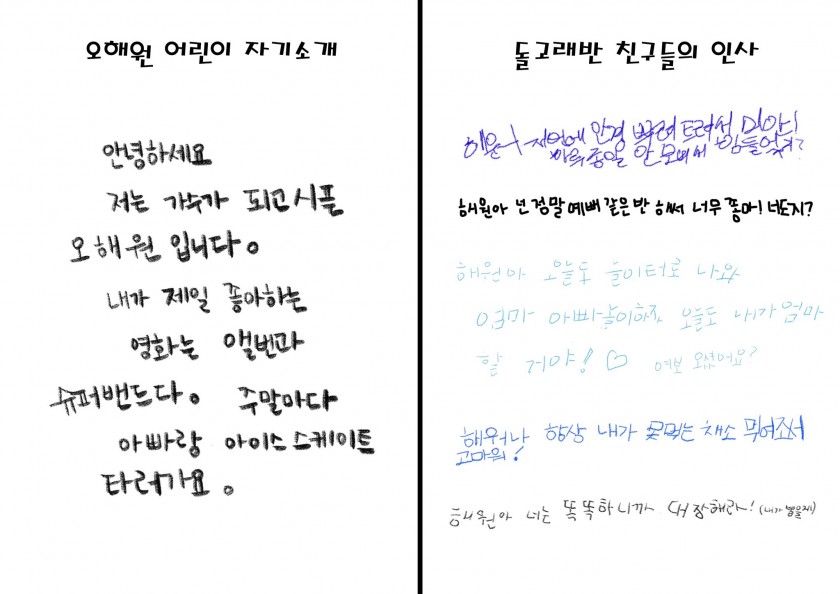 오해원 어린이 자기소개
안녕하세요
저는 가수가 되고시픈
오해원 입니다.
내가 제일 좋아하는
영화는 앨번과
슈퍼밴드다. 주말마다
아빠랑 아이스스케이트
타러가요.
돌고래반 친구들의 인사
해원아 저번에 안경 뿌려트려서 미안!
하루종일 안보여서 힘들었지?
해원아 넌 정말 예뻐 같은반 해써 너무 쫗아! 너도지?
해원아 오늘도 놀이터로 나와
엄마 아빠놀이하자 오늘도 내가 엄마
할 거야! ♡ 여보 오셨어요?
해워나 항상 내가 못먹는 채소 먹어줘서
고마워!
해원아 너는 똑똑하니까 대장해라! (내가 뽑을게)